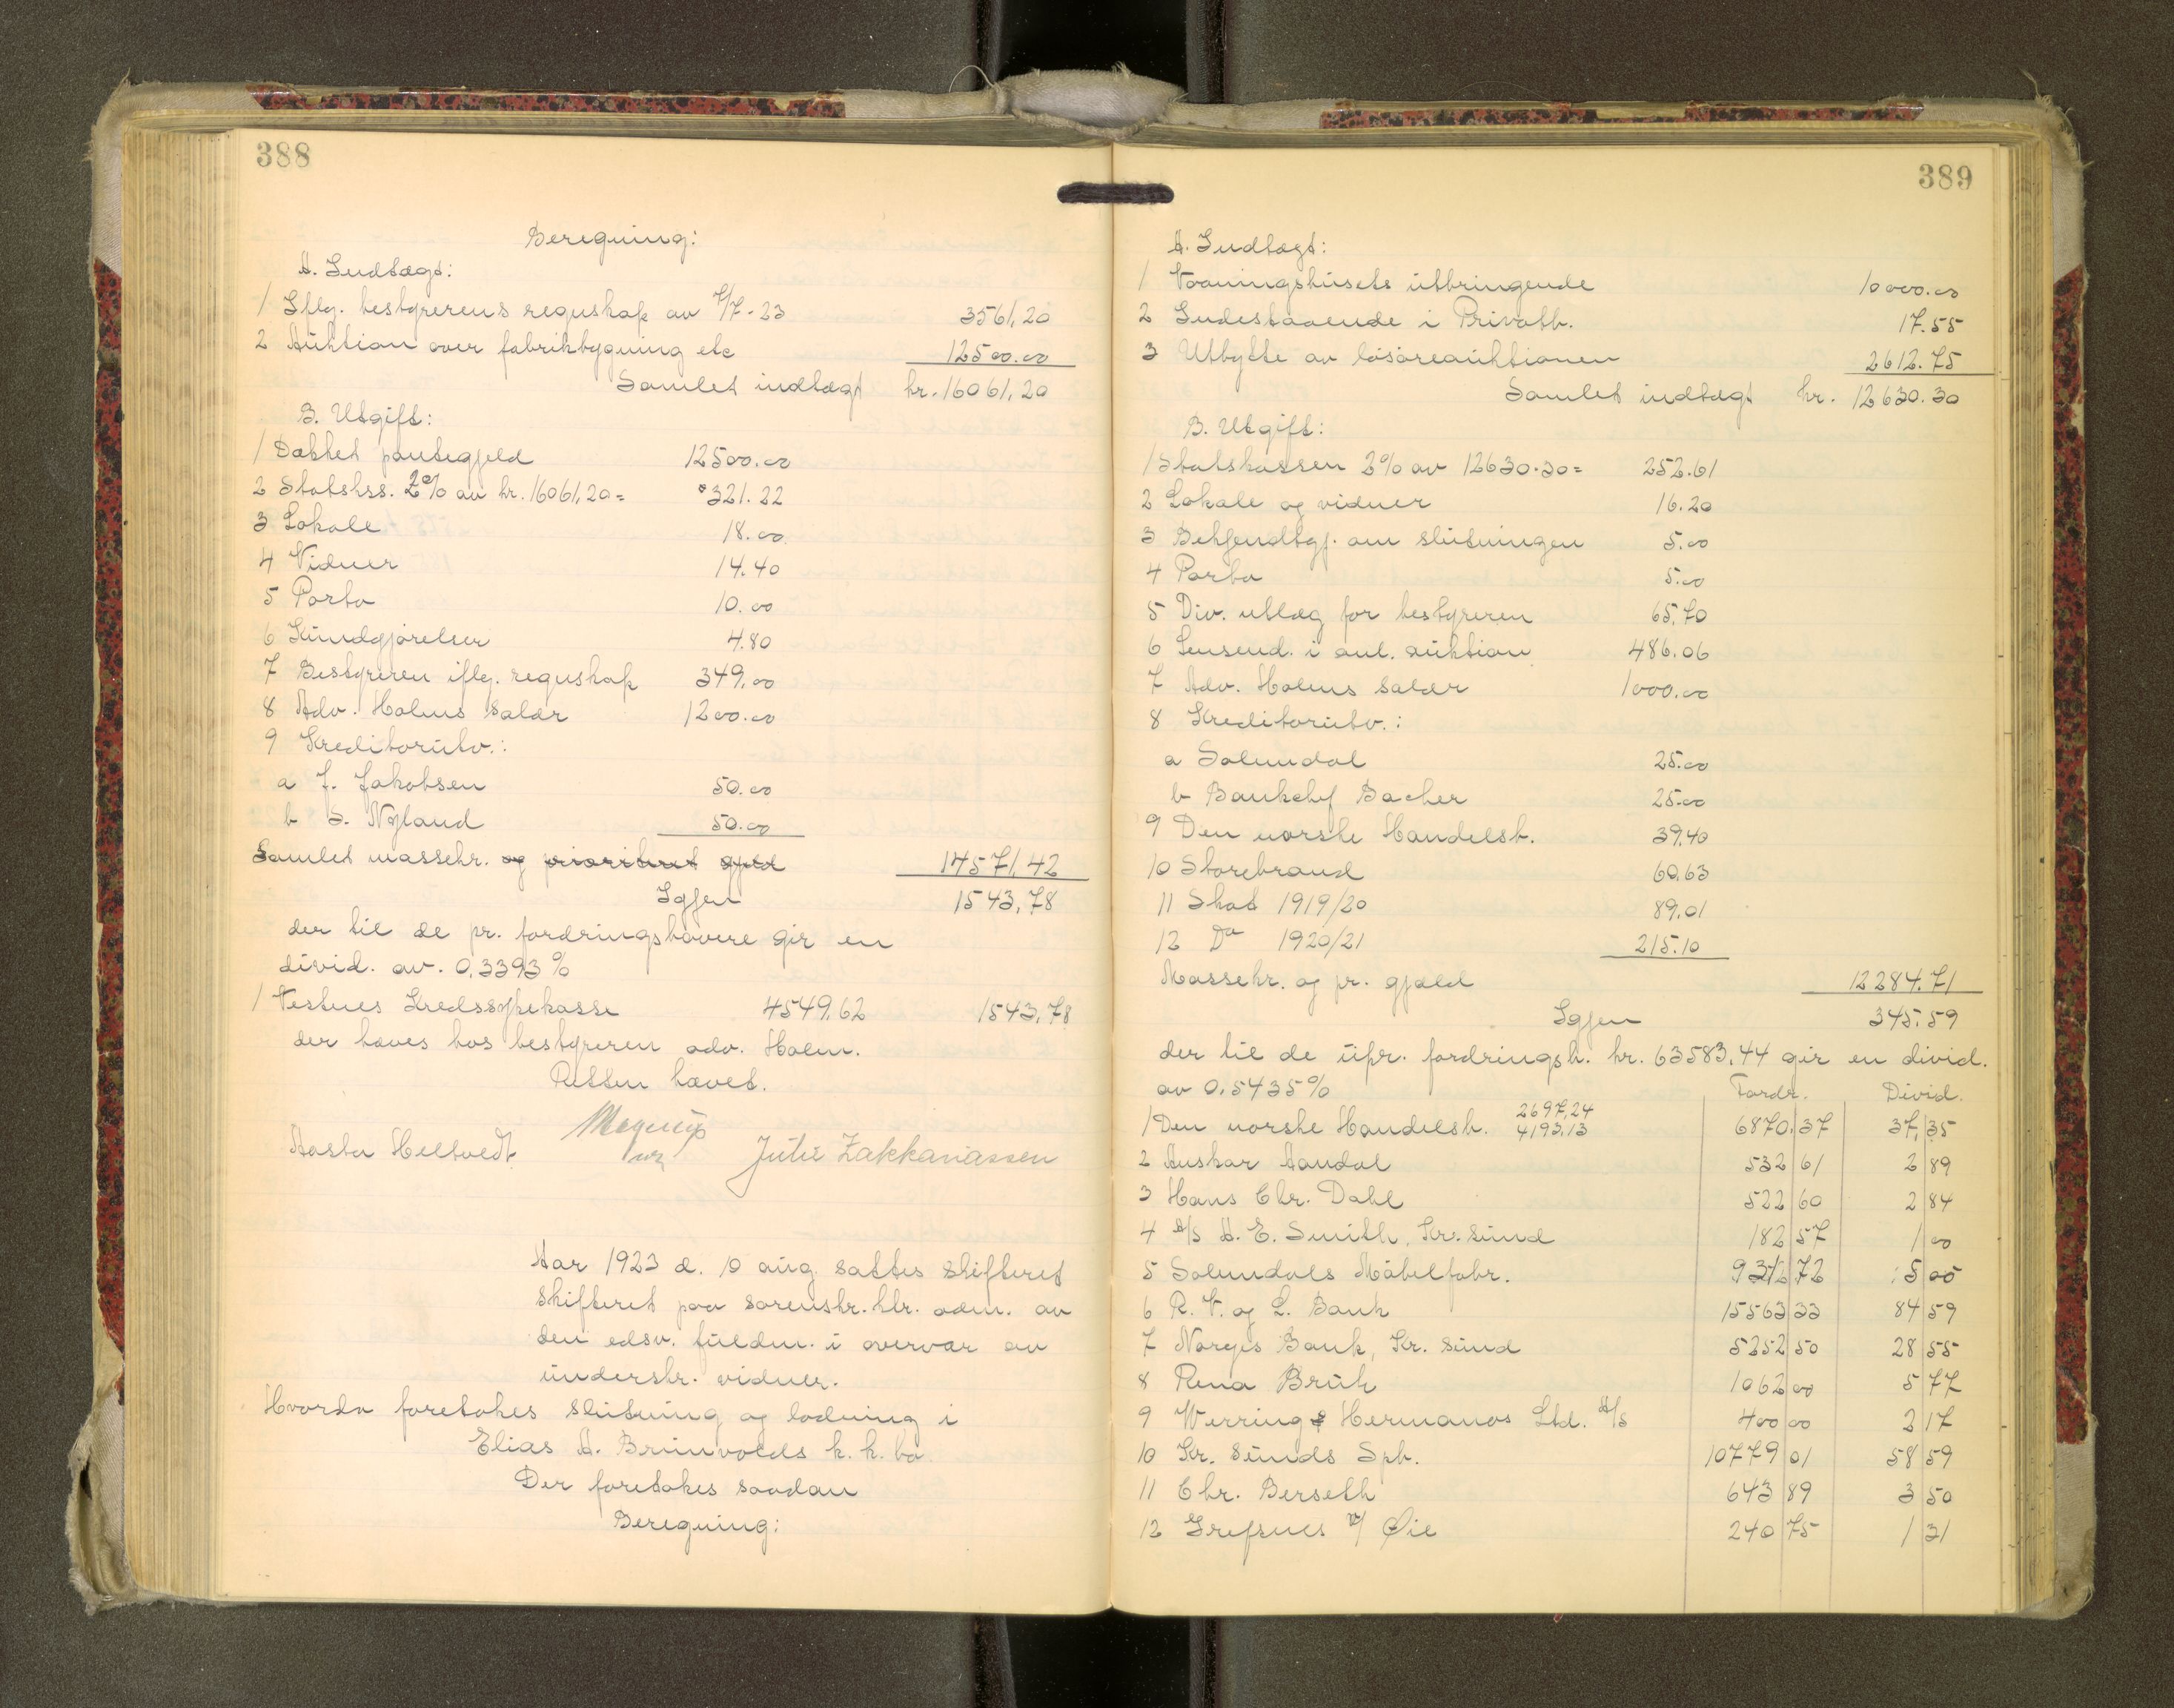 388
Beregning:
A. Indtægt:
1 Iflg. bestyrerens regnskap av 7/7-23 3561,20
2 Auktion over fabrikbygning etc 12500.00
Samlet indtægt kr. 16061,20
B. Utgift:
1 Dækket pantegjeld 12500.00
2 Statsks. 2% av kr. 16061,20 = 321.22
3 Lokale 18.00
4 Vidner 14.40
5 Porto 10.00
6 Kundgjørelser 4.80
7 Bestyreren iflg. regnskap 349,00
8 Adv. Holms salær 1200.00
9 Kreditorutv.:
a J. Jakobsen 50.00
b S. Nyland 50.00
Samlet massekr. og prioritert gjeld 14571,42
Igjen 1543,78
der til de pr. fordringshavere gir en
divid. av. 0,3393%
1 Vestnes Kredssykekasse 4549,62 1543,78
der hæves hos bestyreren adv. Holm.
Retten hævet.
Aasta Heltvedt Julie Zakkariassen
Aar 1923 d. 10 aug. sattes skifteret
skifteret paa sorenskr. ktr. adm. av
den edsv. fuldm. i overvær av
underskr. vidner.
Hvorda foretokes slutning og lodning i
Elias A. Brunvolds k. k. bo
Der foretokes saadan
Beregning:
389
A. Indtægt:
1 Vaaningshusets utbringende 10000.00
2 Indestaaende i Privatb. 17.55
3 Utbytte av løsøreauktionen 2612.75
Samlet indtægt kr. 12630.30
B. Utgift:
1 Statskassen 2% av 12630.30 = 252.61
2 Lokale og vidner 16.20
3 Bekjendtgj. om slutningen 5.00
4 Porto 5.00
5 Div. utlæg for bestyreren 65.70
6 Lensmd. i anl. auktion 486.06
7 Adv. Holms salær 1000.00
8 Kreditorutv.:
a Solemdal 25.00
b Bankchef Bacher 25.00
9 Den norske Handelsb. 39,40
10 Storebrand 60,63
11 Skat 1919/20 89,01
12 Do 1920/21 215.10
Massekr. og pr. gjæld 12284.71
Igjen 345.59
der til de upr. fordringsh. kr. 63583,44 gir en divid.
av 0,5435% Fordr. Divid.
1 Den norske Handelsb. 2697,24 4193,13 6870,37 37,35
2 Anskar Aandal 532 61 2 89
3 Hans Chr. Dahl 522 60 2 84
4 A/S A. E. Smith, Kr. sund 182 57 1 00
5 Solemdals Møbelfabr. 932 72 5 05
6 R. V. og L. Bank 15563 33 84 59
7 Norges Bank, Kr. sund 5252 50 28 55
8 Rena Bruk 1062 00 5 77
9 Werring & Hermanos Ltd. A/S 400 00 2 17
10 Kr. sunds Spb. 10779 01 58 59
11 Chr. Berseth 643 89 3 50
12 Grefsnes v/ Øie 240 75 1 31